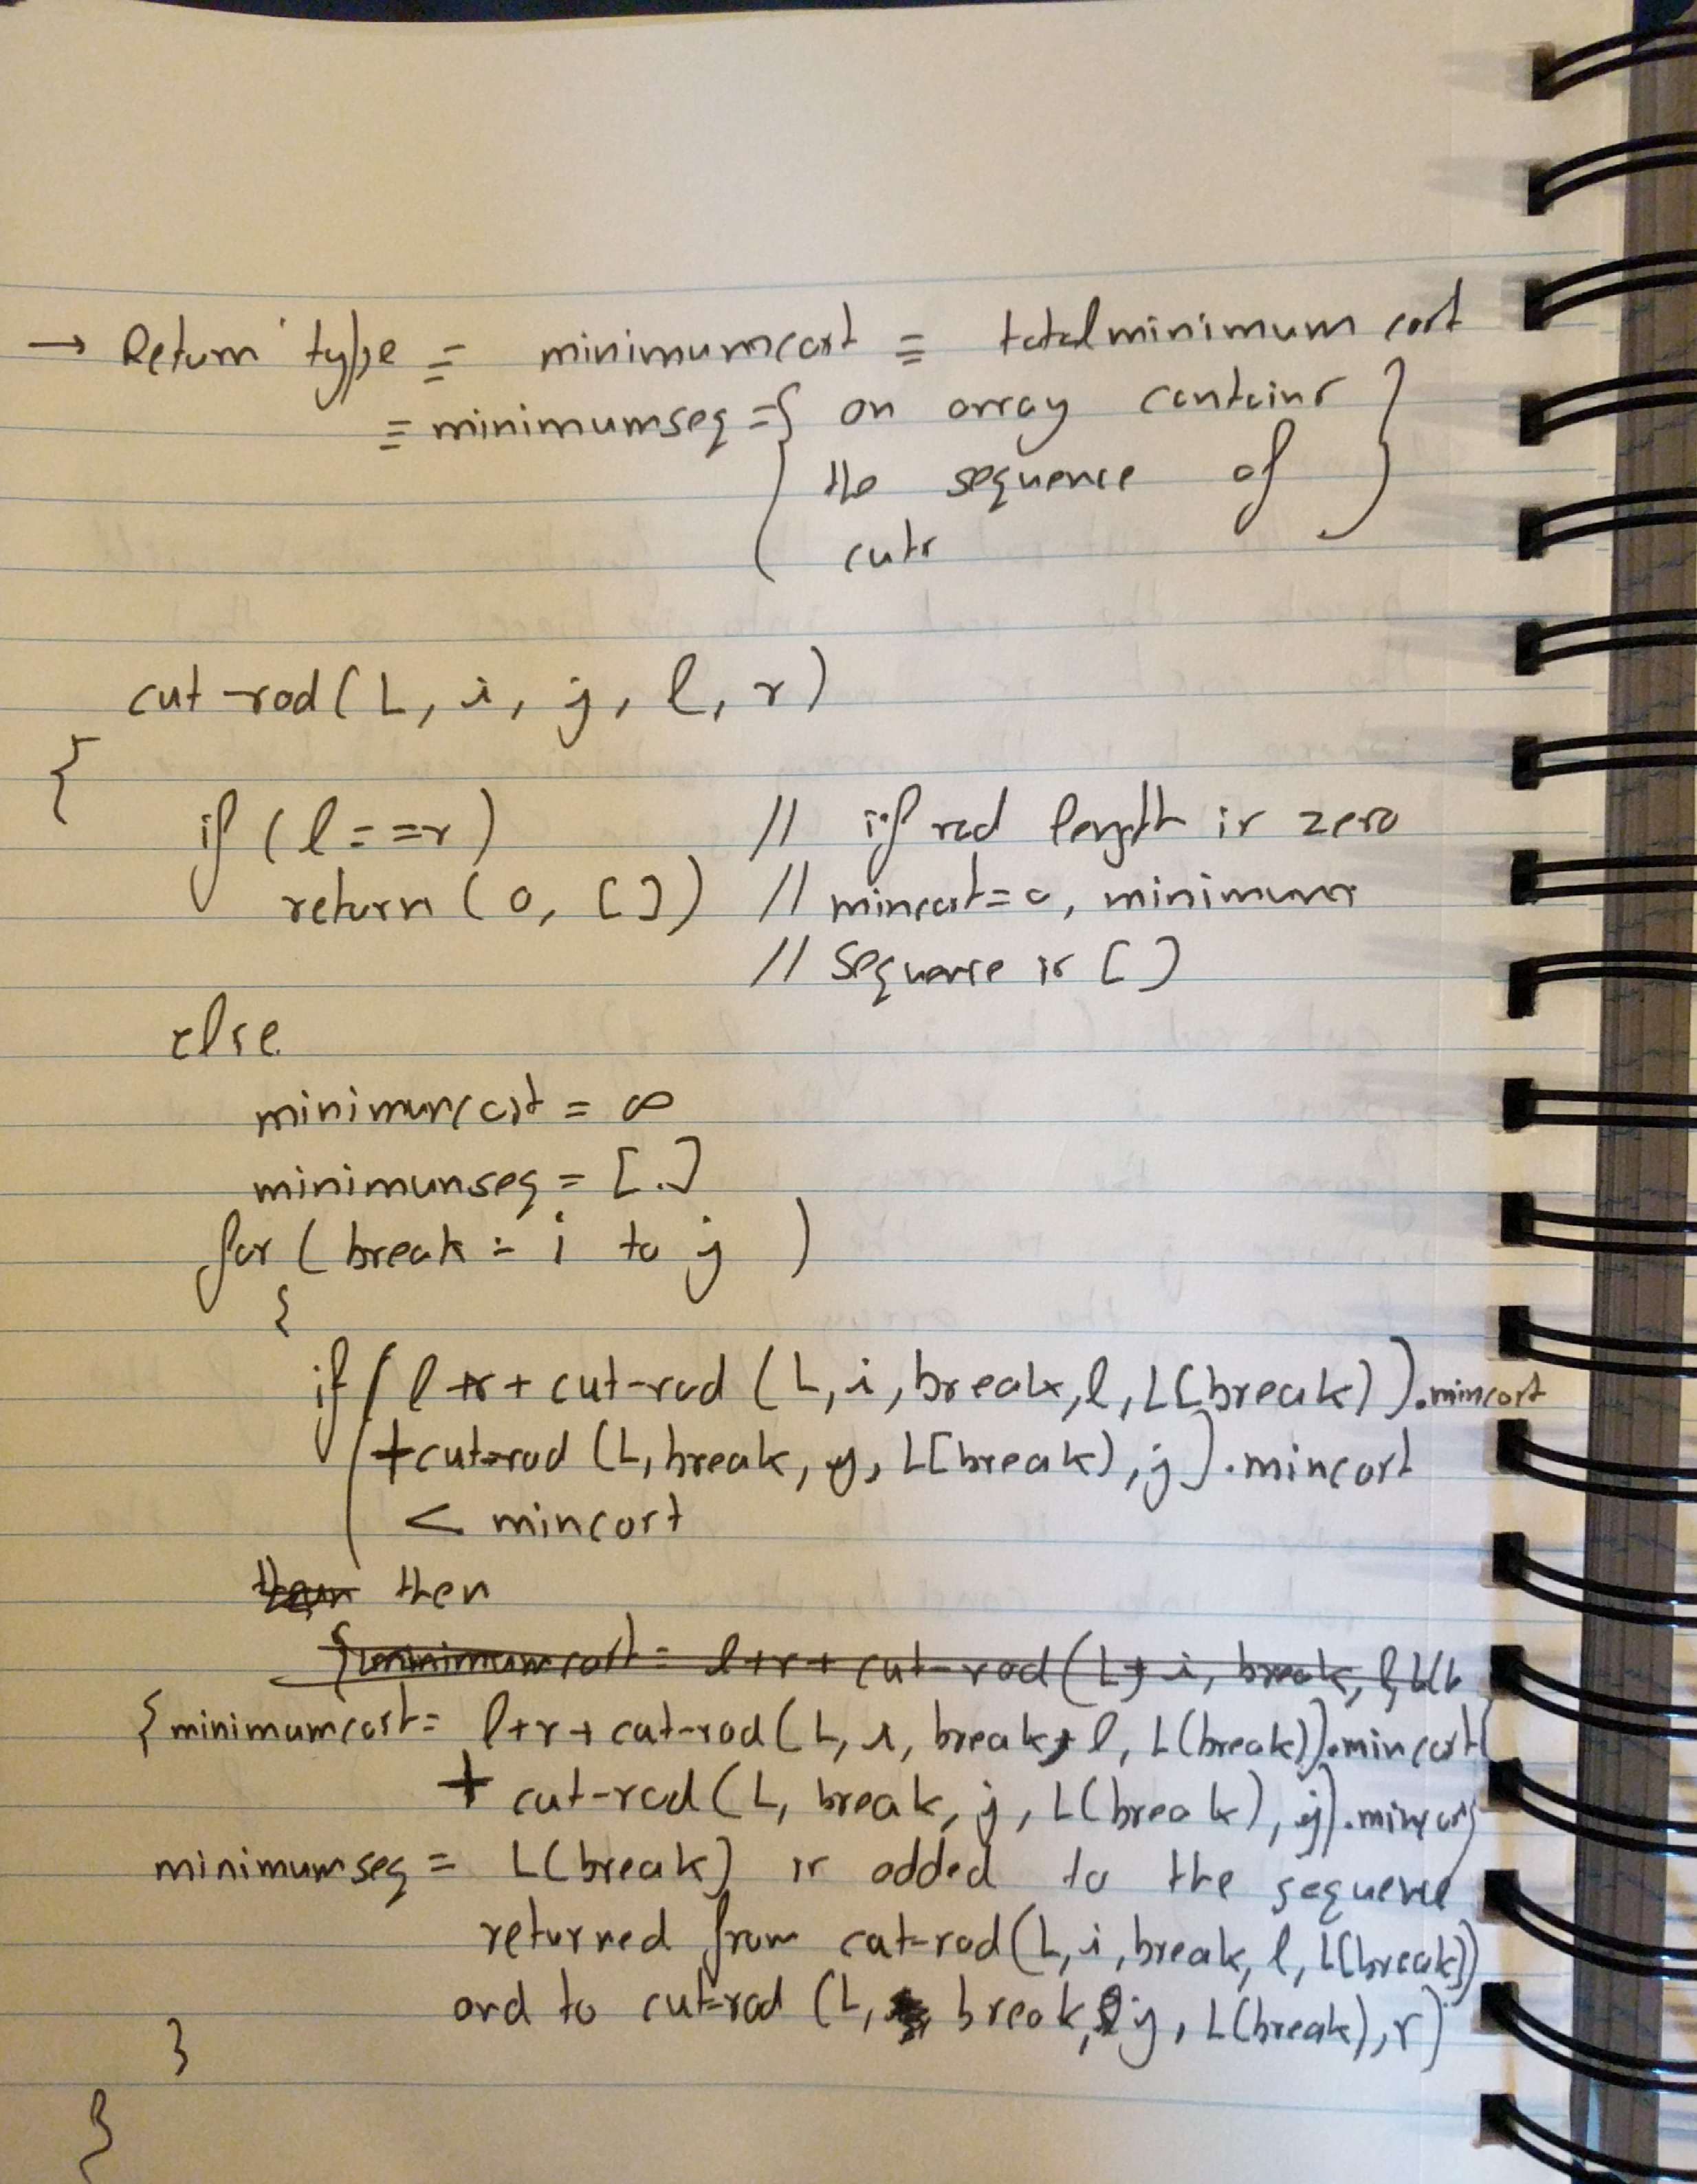 → Return type = minimumcost = total minimum cost
= minimumseq = { an array contains }
the sequence of
cuts
cut-rod(L, i, j, l, r)
{
if (l==r) // if rod length is zero
return (0, []) // mincost=0, minimum
// sequence is []
else
minimumcost = ∞
minimumseq = [.]
for (break = i to j )
{
if ( l+r+cut-rod (L, i, break, l, L[break]).mincost
+cut-rod (L, break, j, L[break], j).mincost
< mincost
then then
{minimumcost = l+r+cut-rod(L, i, break, l, L(b
{minimumcost= l+r+cut-rod(L, i, break, l, L(break)).mincost
+ cut-rod(L, break, j, L(break), j).mincost
minimumseq = L(break) is added to the sequence
returned from cut-rod(L, i, break, l, L[break])
and to cut-rod (L, break, j, L(break), r)
}
}